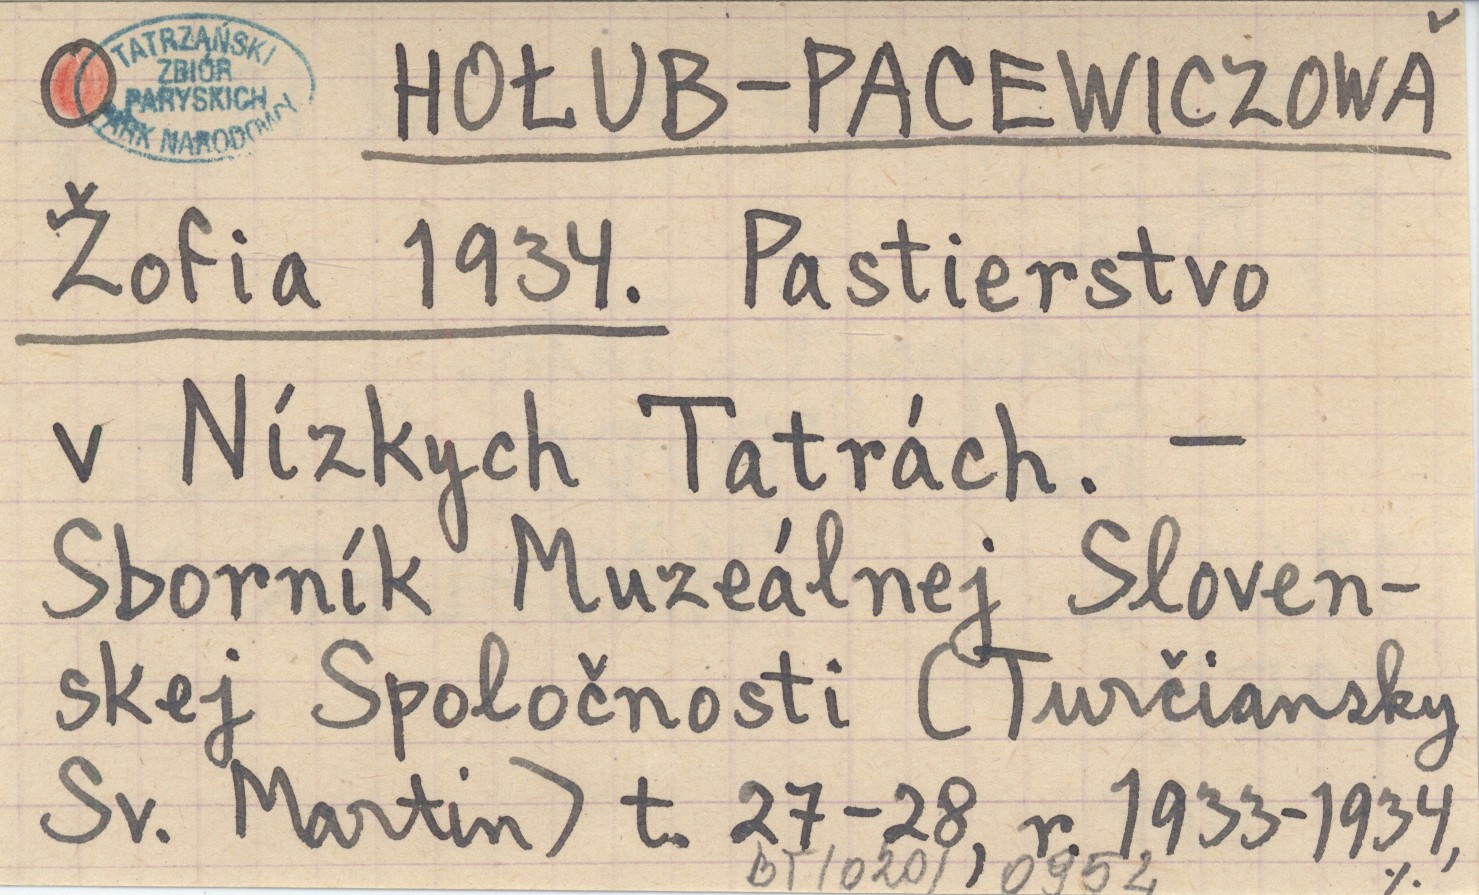 TATRZAŃSKI
ZBIÓR
PARYSKICH
PARK NARODOWY
HOŁUB-PACEWICZOWA
Žofia 1934. Pastierstvo
v Nízkych Tatrách. —
Sborník Muzeálnej Sloven-
skej Spoločnosti (Turčiansky
Sv. Martin) t. 27-28, r. 1933-1934,
BT/020/, 0952